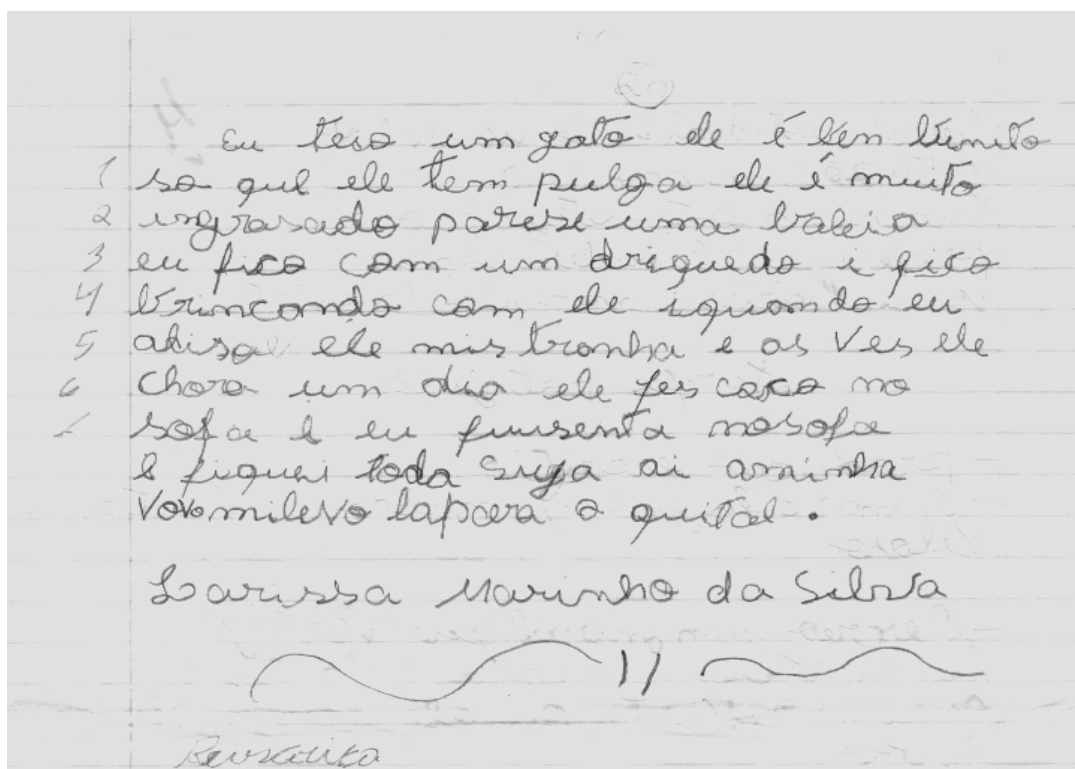 Eu teio um gato ele é ben bunito
1 so que ele tem pulga ele é muito
2 ingrasado parese uma baleia
3 eu fico com um driquedo i fico
4 brincando com ele iquando eu
5 ele mis tronha e as Ves ele
6 chora um dia ele fes coco no
sofa e eu fuisenta nosofa
e fiquei toda suja ai aminha
Vovo milevo lapara o quital.
Larissa Marinho da Silva